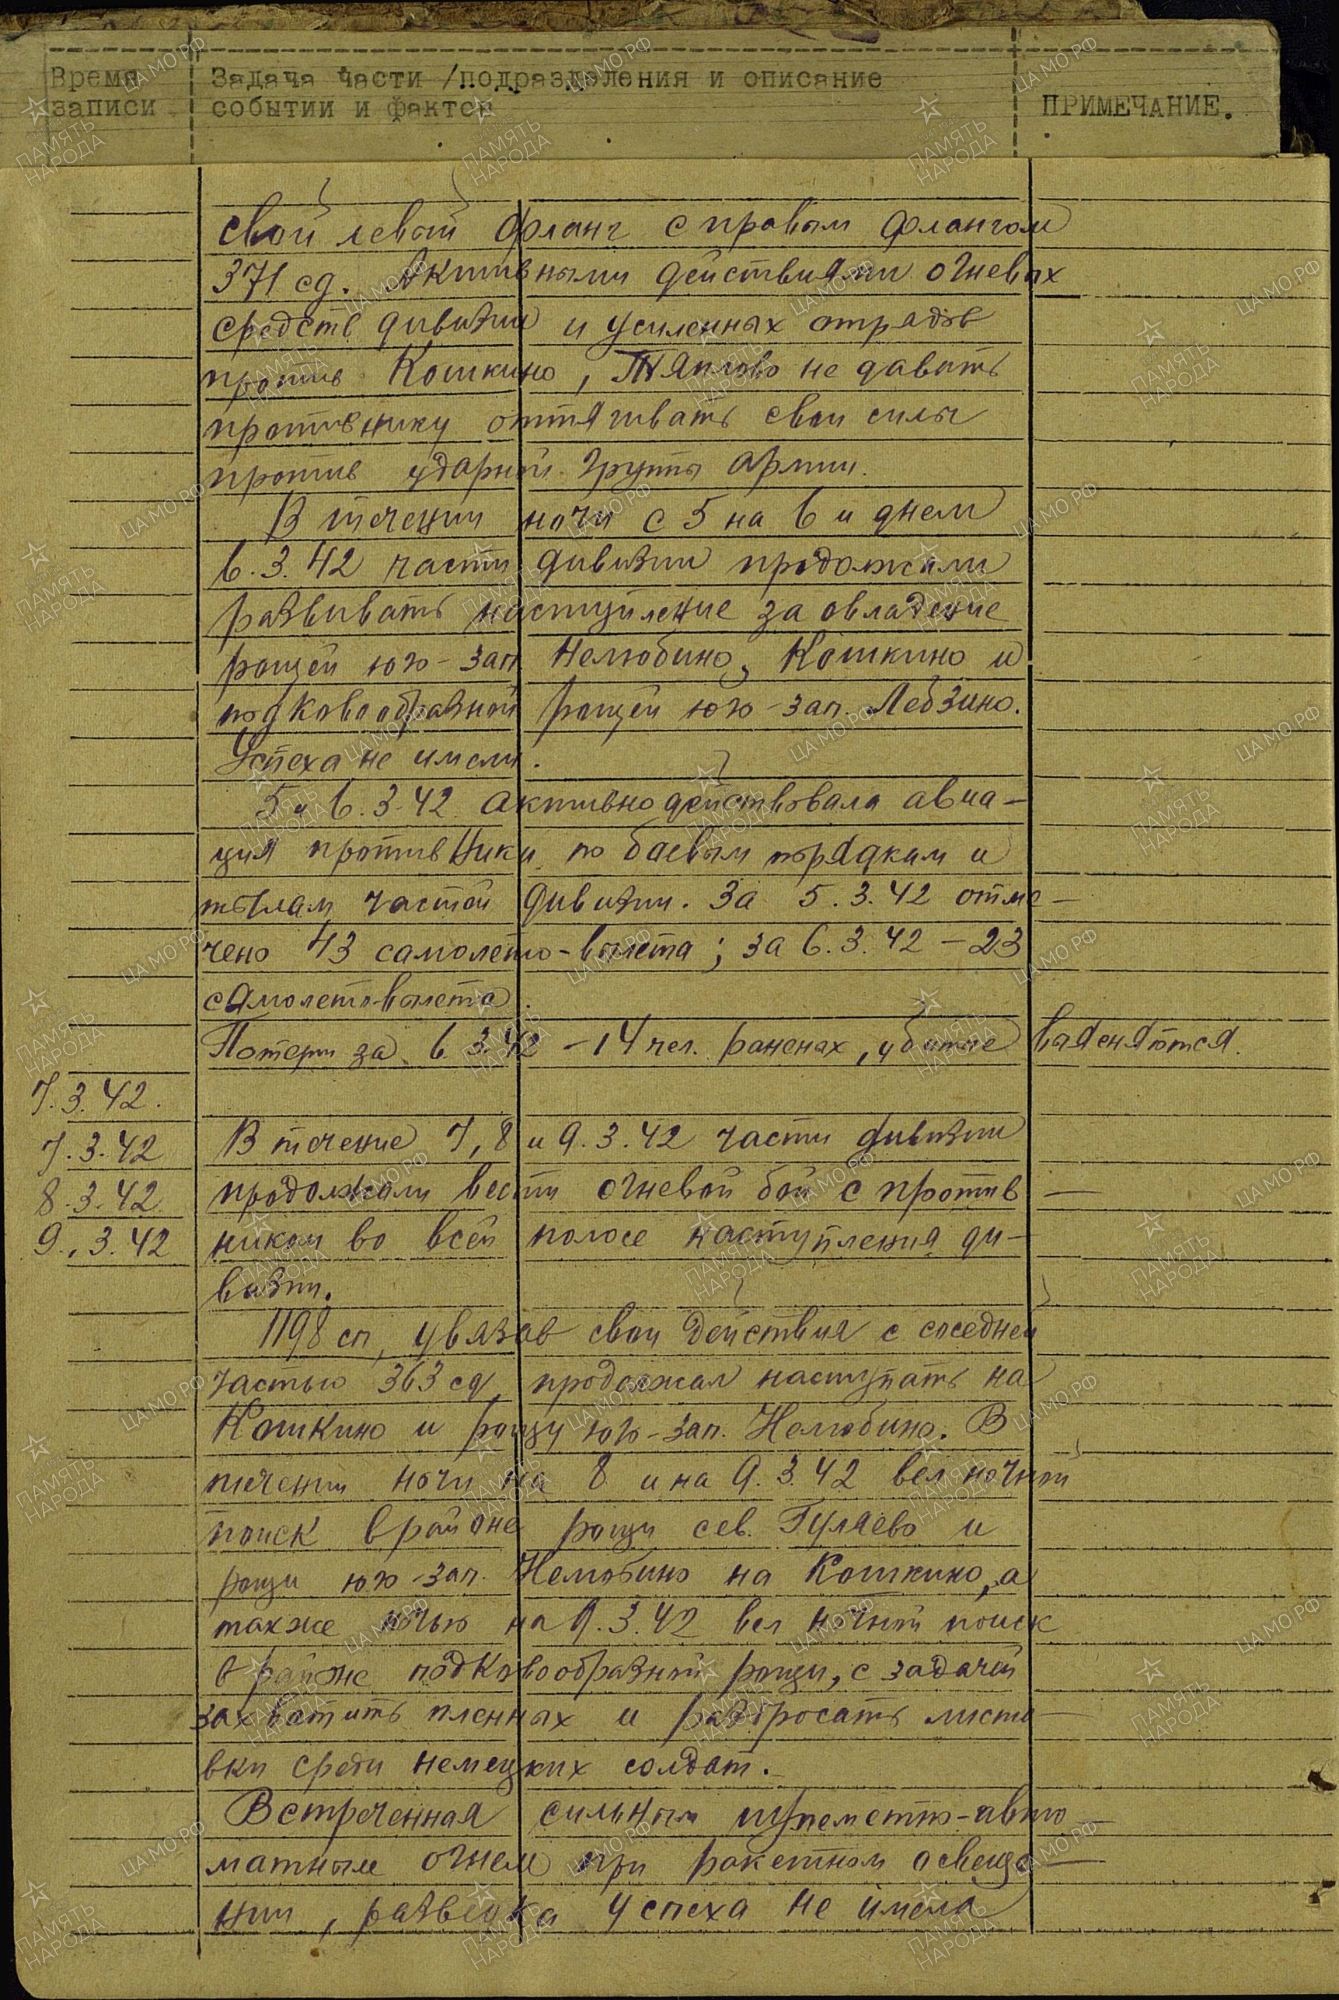 Время записи
Задача части /подразделения и описание событий и фактов
ПРИМЕЧАНИЕ.
свой левый фланг с правым флангом
371 сд. Активными действиями огневых
средств дивизии и усиленных отрядов
против Кошкино, Тяплово не давать
противнику оттягивать свои силы
против ударной группы армии.
В течении ночи с 5 на 6 и днем
6.3.42 части дивизии продолжали
развивать наступление за овладение
рощей юго-зап. Нелюбино, Кошкино и
подковообразной рощей юго-зап. Лебзино.
Успеха не имели.
5 и 6.3.42 активно действовала авиа-
ция противника по боевым порядкам и
тылам частей дивизии. За 5.3.42 отме-
чено 43 самолето-вылета; за 6.3.42 - 23
самолето-вылета.
Потери за 6.3.42 - 14 чел. раненых, убитые выясняются.
7.3.42.
7.3.42 В течение 7, 8 и 9.3.42 части дивизии
8.3.42. продолжали вести огневой бой с против-
9.3.42 ником во всей полосе наступления ди-
визии.
1198 сп, увязав свои действия с соседней
частью 363 сд, продолжал наступать на
Кошкино и рощу юго-зап. Нелюбино. В
течении ночи на 8 и на 9.3.42 вел ночной
поиск в районе рощи сев. Гуляево и
рощи юго-зап. Нелюбино на Кошкино, а
также ночью на 9.3.42 вел ночной поиск
в районе подковообразной рощи, с задачей
захватить пленных и разбросать листо-
вки среди немецких солдат.
Встреченная сильным пулеметно-авто-
матным огнем при ракетном освеще-
нии, разведка успеха не имела
ПАМЯТЬ НАРОДА
ЦАМО.РФ